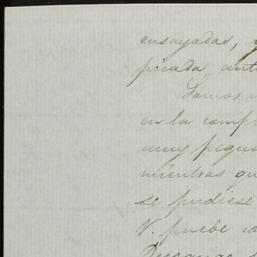 ensayadas, y
picada ant
Vamos
en la comp
muy pequ
mientras qu
se pudiese
V. puede
Durango